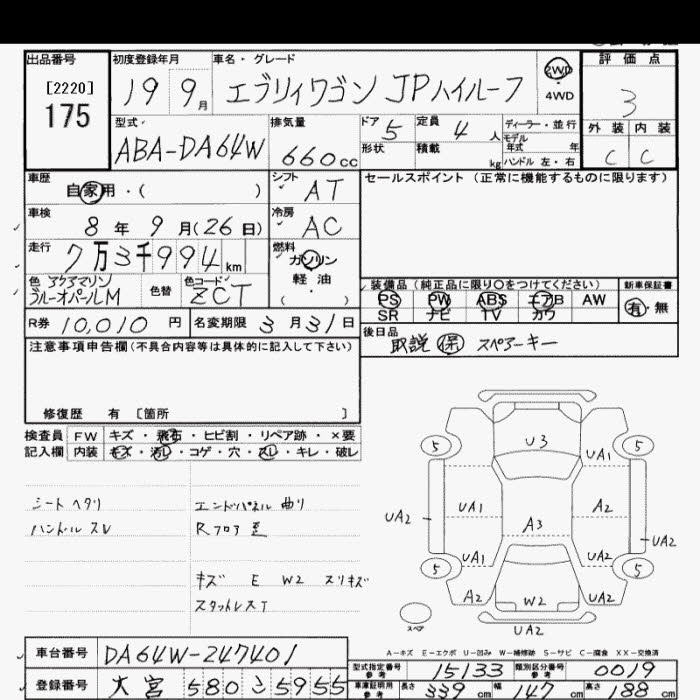 出品番号 初度登録年月 車名・グレード 2WD 評価点
[2220] 175 19 9月 エブリイワゴン JPハイルーフ 4WD 3
型式 排気量 ドア 5 定員 4人 ディーラー・並行 外装 内装
ABA-DA64W 660cc 形状 積載 kg モデル年式 年 ハンドル 左・右 C C
車歴 自家用・( ) シフト AT セールスポイント (正常に機能するものに限ります)
車検 8年 9月(26日) 冷房 AC
走行 7万3千994km 燃料 ガソリン
軽油
( )
色 アクアマリンブルーオパールM 色替 色コード ZCT 装備品(純正品に限り○をつけてください) 新車保証書
PS PW ABS エアB AW 有・無
SR ナビ TV カワ
R券 10,010円 名変期限 3月31日 後日品
取説 保 スペアーキー
注意事項申告欄(不具合内容等は具体的に記入して下さい)
修復歴 有 [箇所 ]
検査員 FW キズ・飛石・ヒビ割・リペア跡・×要
記入欄 内装 キズ・汚レ・コゲ・穴・スレ・キレ・破レ
シートヘタリ エンドパネル曲り
ハンドルスレ Rフロア歪
キズ E W2 スリキズ
スタットレスT
U3
5 5
UA1
UA1 A2
UA2 A3 UA2
UA1 UA2
5 5
A2 W2 UA2
スペア
UA2
A-キズ E-エクボ U-凹み W-補修跡 S-サビ C-腐食 XX-交換済
車台番号 DA64W-247401
型式指定番号 参考 15133 類別区分番号 参考 0019
登録番号 大宮 580 こ 5955
車庫証明用 参考 長さ 339cm 幅 147cm 高さ 188cm